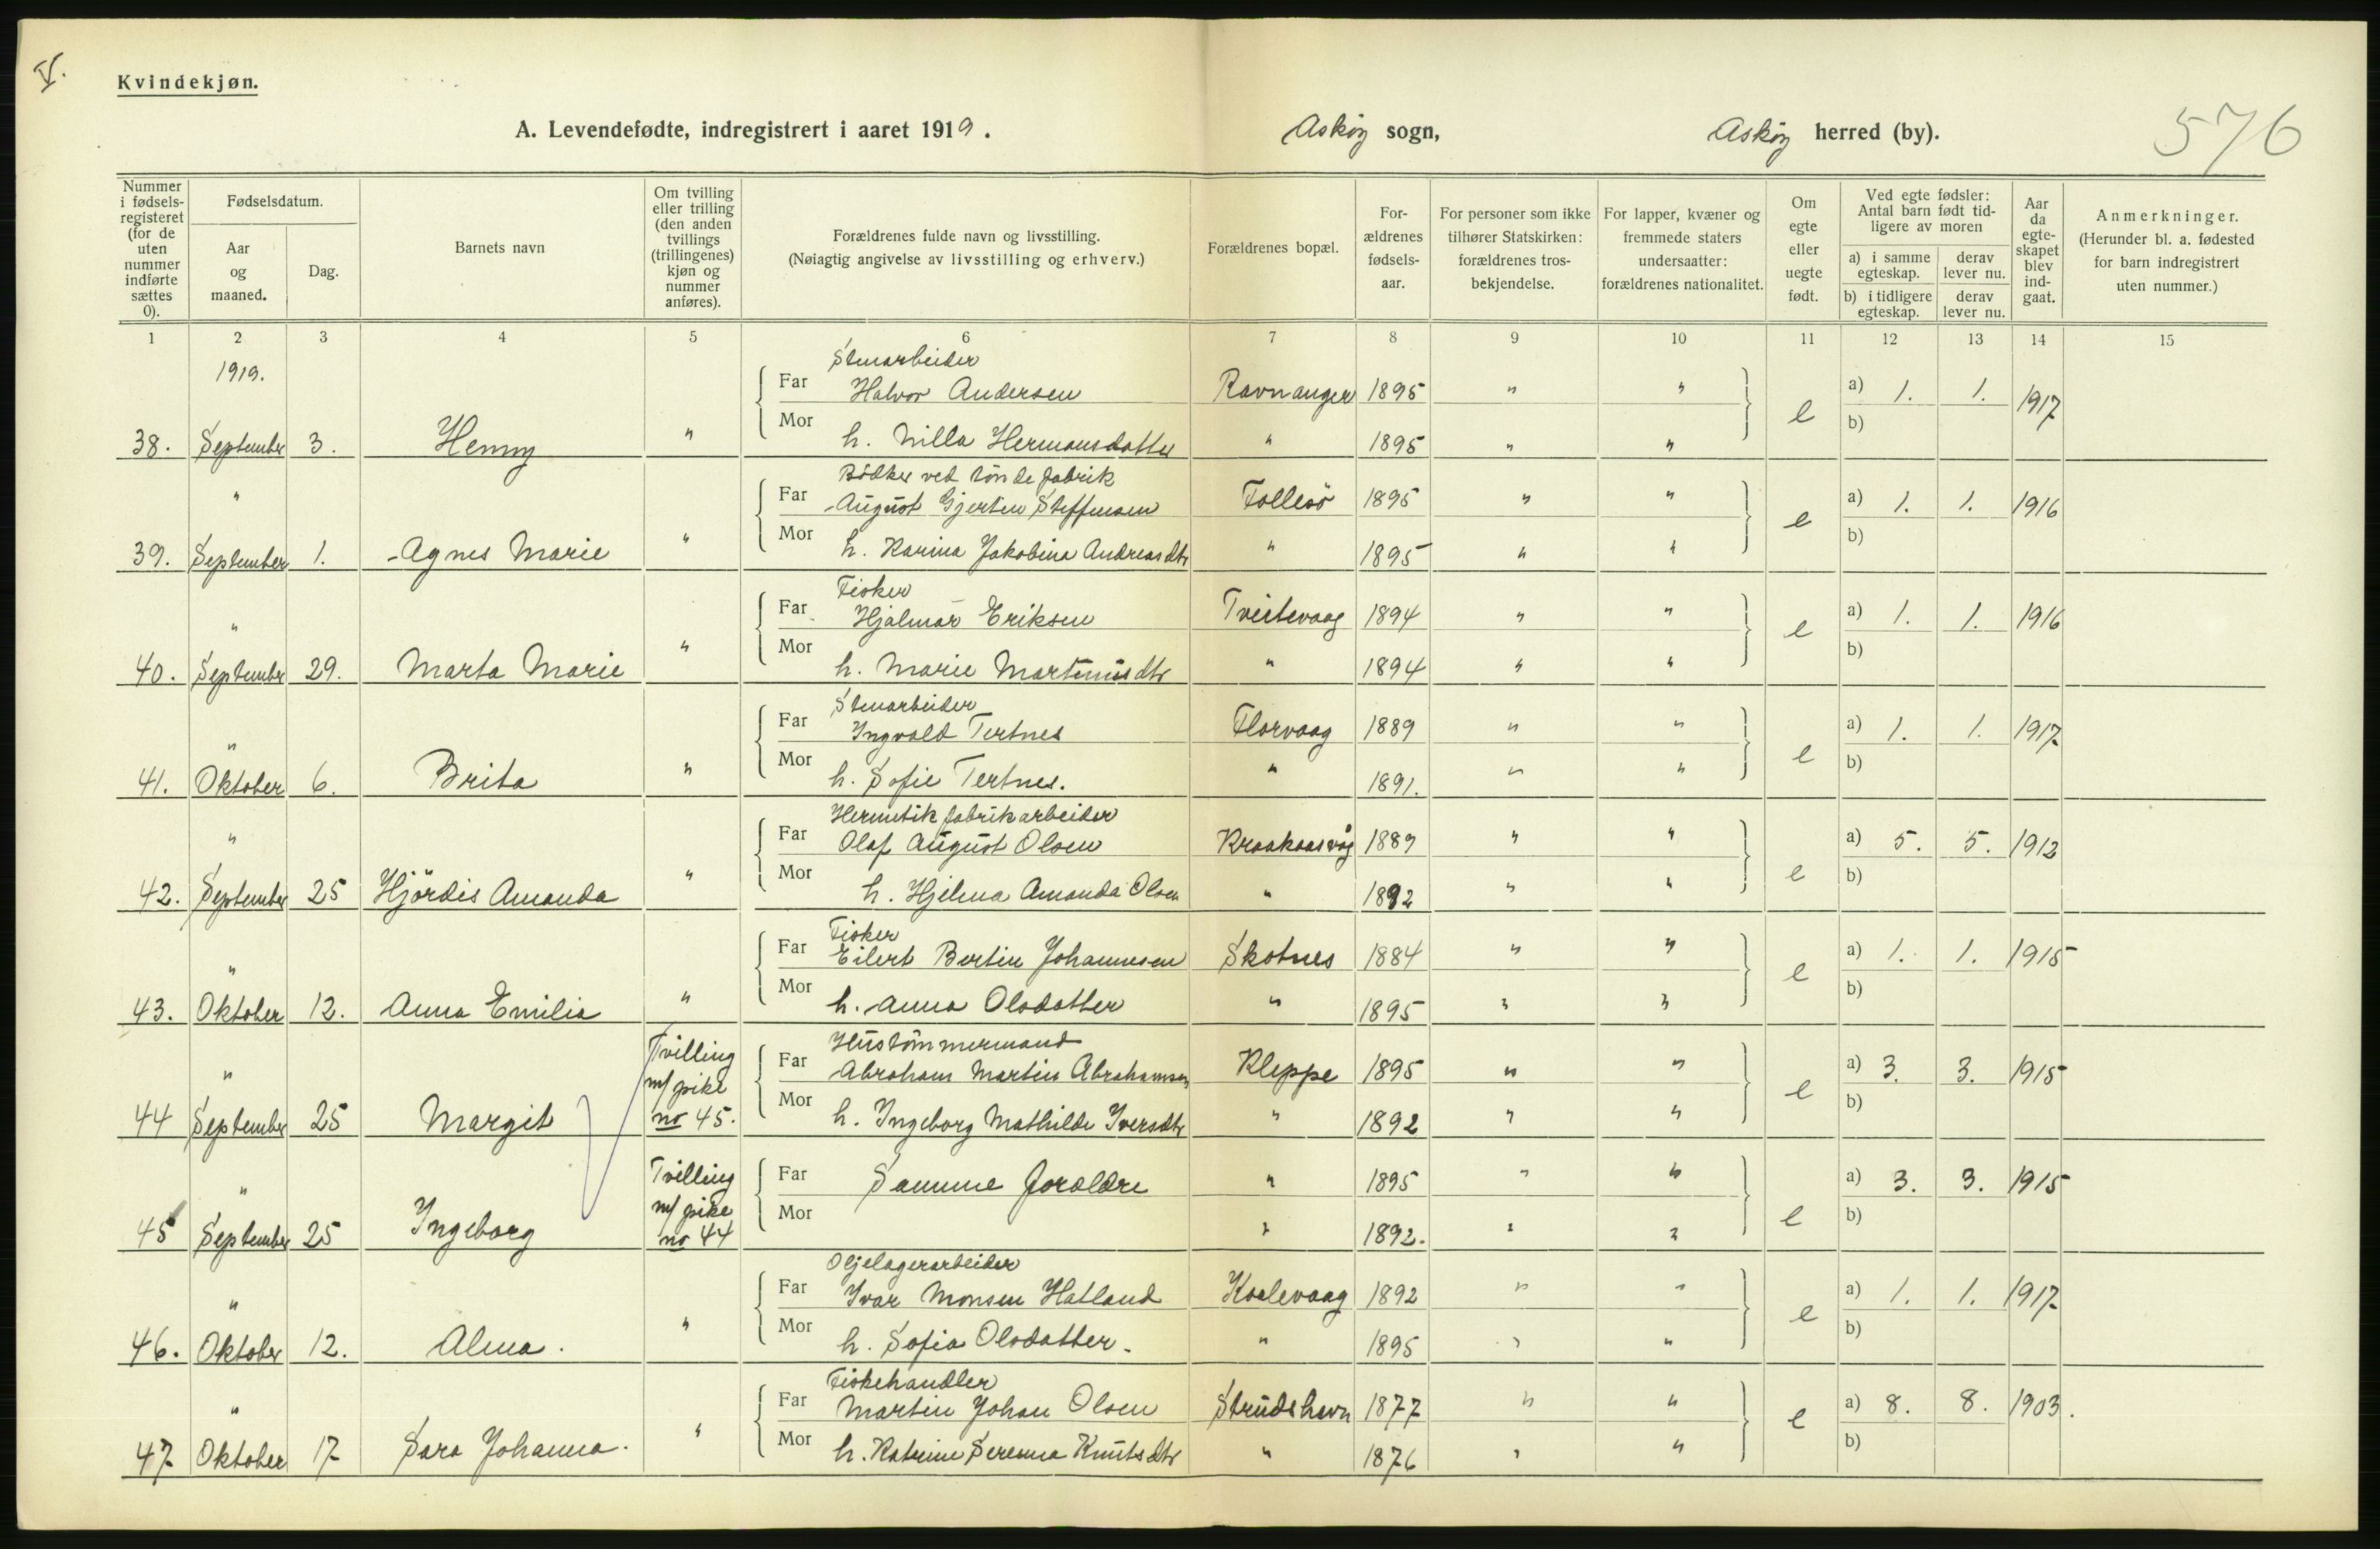 V.
Kvindekjøn.
A. Levendefødte, indregistrert i aaret 1919. Askøy sogn, Askøy herred (by). 576
Nummer i fødsels-registeret (for de uten nummer indførte sættes 0).
Fødselsdatum.
Aar og maaned.
Dag.
Barnets navn
Om tvilling eller trilling (den anden tvillings (trillingenes) kjøn og nummer anføres).
Forældrenes fulde navn og livsstilling.
(Nøiagtig angivelse av livsstilling og erhverv.)
Forældrenes bopæl.
For-ældrenes fødsels-aar.
For personer som ikke tilhører Statskirken: forældrenes tros-bekjendelse.
For lapper, kvæner og fremmede staters undersaatter: forældrenes nationalitet.
Om egte eller uegte født.
Ved egte fødsler: Antal barn født tid-ligere av moren
a) i samme egteskap.
derav lever nu.
b) i tidligere egteskap.
derav lever nu.
Aar da egte-skapet blev ind-gaat.
Anmerkninger.
(Herunder bl. a. fødested for barn indregistrert uten nummer.)
1 2 3 4 5 6 7 8 9 10 11 12 13 14 15
1919.
Stenarbeider
Far Halvor Andersen Ravnanger 1895 " " e a) 1. 1. 1917
38. September 3. Henny " Mor h. Nilla Hermansdatter " 1895 " " b)
Bødker ved tøndefabrik
" Far August Gjertin Steffensen Follesö 1895 " " e a) 1. 1. 1916
39. September 1. Agnes Marie " Mor h. Karina Jakobina Andreasdtr " 1895 " " b)
Fisker
" Far Hjalmar Eriksen Tveitevaag 1894 " " e a) 1. 1. 1916
40. September 29. Marta Marie " Mor h. Marie Martinusdtr " 1894 " " b)
Stenarbeider
" Far Ingvald Tertnes Florvaag 1889 " " e a) 1. 1. 1917
41. Oktober 6. Brita " Mor h. Sofie Tertnes. " 1891. " " b)
Hermetikfabrikarbeider
" Far Olaf August Olsen Kraakaasvåg 1889 " " e a) 5. 5. 1912
42. September 25 Hjördis Amanda " Mor h. Hjelma Amanda Olsen " 1892 " " b)
Fisker
" Far Eilert Bertin Johannesen Skotnes 1884 " " e a) 1. 1. 1915
43. Oktober 12. Anna Emilia " Mor h. Anna Olsdatter " 1895 " " b)
Hustømmermand
" Far Abraham Martin Abrahamsen Kleppe 1895 " " e a) 3. 3. 1915
44 September 25 Margit Tvilling m/ pike no 45. Mor h. Ingeborg Mathilde Iversdtr " 1892 " " b)
" Far Samme forældre " 1895 " " e a) 3. 3. 1915
45 September 25 Ingeborg Tvilling m/ pike no 44 Mor " 1892. " " b)
Oljelagerarbeider
" Far Ivar Monsen Hatland Kralevaag 1892 " " e a) 1. 1. 1917
46. Oktober 12. Alma. " Mor h. Sofia Olsdatter. " 1895 " " b)
Fiskehandler
" Far Martin Johan Olsen Strudshavn 1877 " " e a) 8. 8. 1903.
47 Oktober 17 Sara Johanna. " Mor h. Katrine Serenna Knutsdtr " 1876 " " b)